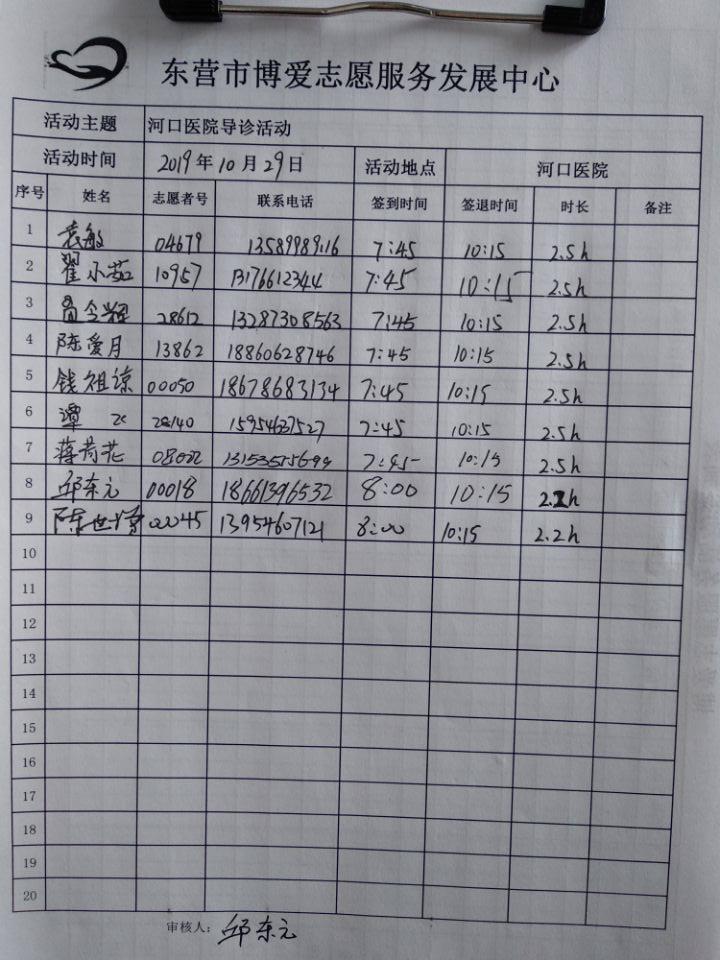 东营市博爱志愿服务发展中心
活动主题 河口医院导诊活动
活动时间 2019年10月29日 活动地点 河口医院
序号 姓名 志愿者号 联系电话 签到时间 签退时间 时长 备注
1 袁敏 04679 13589989116 7:45 10:15 2.5h
2 翟小茹 10957 13176612344 7:45 10:15 2.5h
3 28612 13287308563 7:45 10:15 2.5h
4 陈爱月 13862 18860628746 7:45 10:15 2.5h
5 钱祖谅 00050 18678683134 7:45 10:15 2.5h
6 28140 15954637527 7:45 10:15 2.5h
7 蒋荷花 7:45 10:15 2.5h
8 邱东元 00018 18661396532 8:00 10:15 2.2h
9 00045 13954607121 8:00 10:15 2.2h
10
11
12
13
14
15
16
17
18
19
20
审核人：邱东元